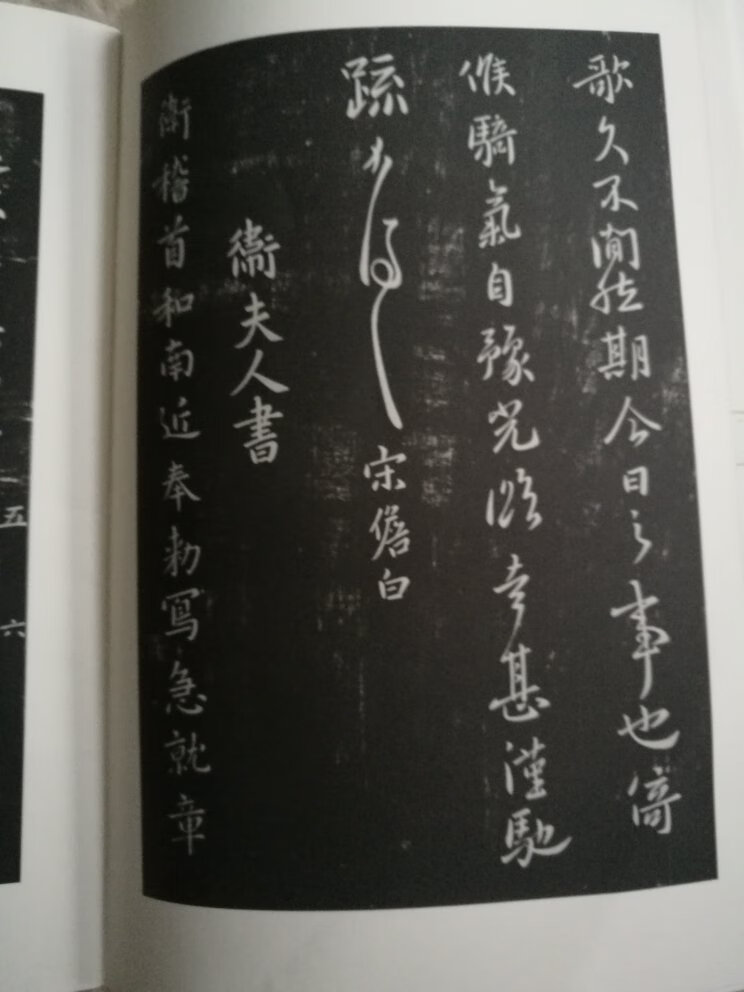 歌久不聞然期今日之事也倚
候騎氣自豫光臨幸甚謹馳
疏 宋儋白
衛夫人書
衛稽首和南近奉勅寫急就章
五
六